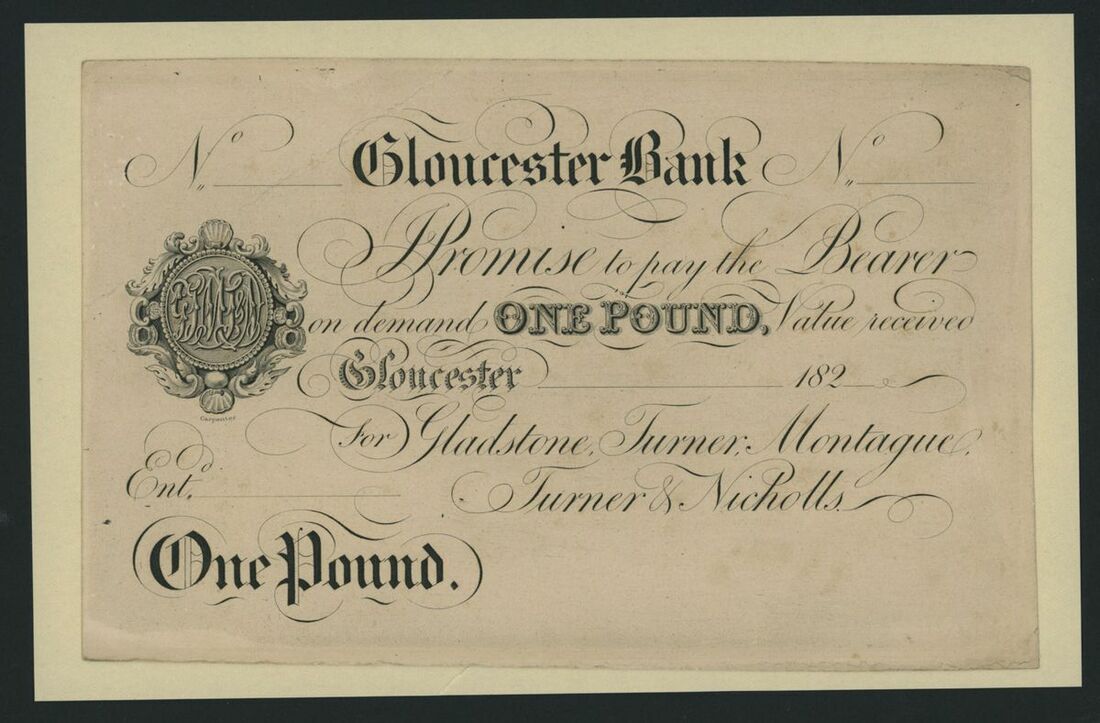 No. Gloucester Bank No.
I Promise to pay the Bearer
on demand ONE POUND, Value received
Gloucester 182
Carpenter
For Gladstone, Turner, Montague,
Ent.d Turner & Nicholls.
One Pound.